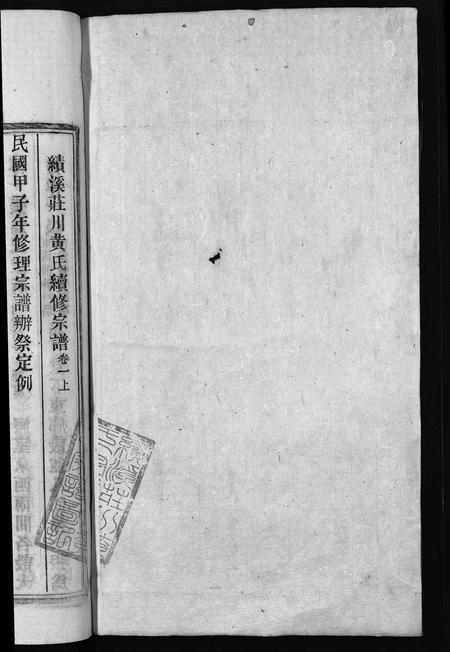 績溪莊川黄氏續修宗譜卷一上
民國甲子年修理宗譜辦祭定例